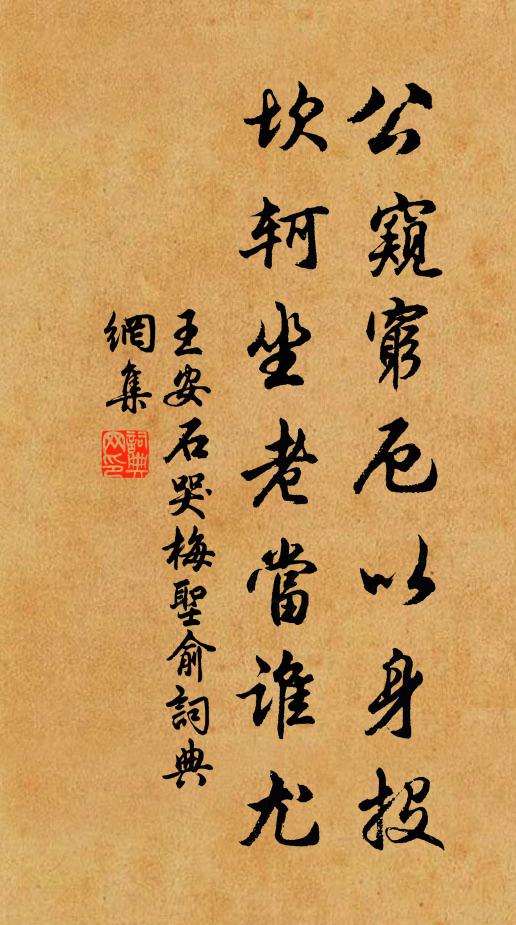 公窺窮厄以身投
坎軻坐老當誰尤
王安石哭梅聖俞詞典
網集
詞典
网印